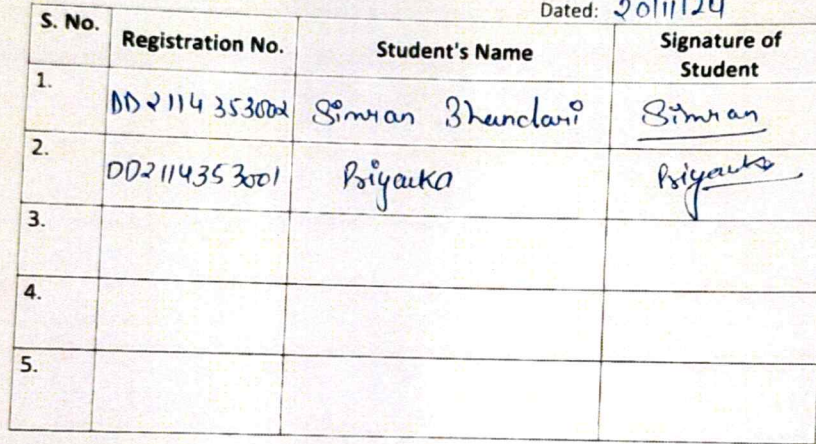 Dated: 20/11/24
S. No. Registration No. Student's Name Signature of Student
1. DD2114353002 Simran Bhandari Simran
2. DD2114353001 Priyanka Priyanka
3.
4.
5.